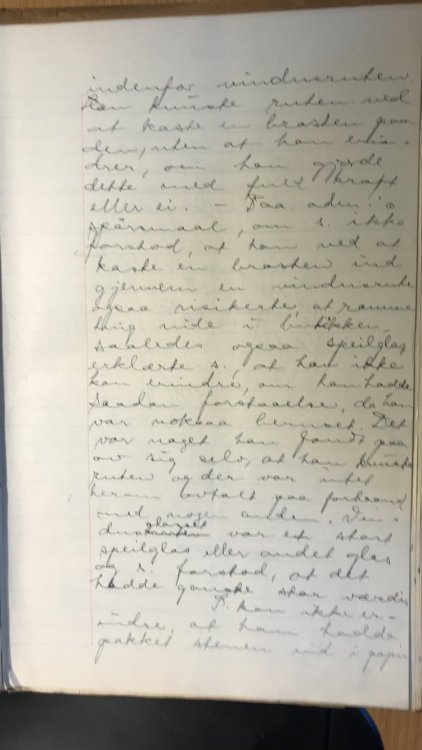 indenfor vindusruten.
Han knuste ruten ved
at kaste en brosten paa
den, uten at han erin-
drer, om han gjorde
dette med fuld kraft
eller ei. — Paa adm.'s
spörsmaal, om s. ikke
forstod, at han ved at
kaste en brosten ind
gjennem en vindusrute
ogsaa risikerte, at ramme
ting inde i butikken,
saaledes ogsaa speilglas
erklærte s., at han ikke
kan erindre, om han hadde
saadan forstaaelse, da han
var noksaa beruset. Det
var noget han fandt paa
av sig selv, at han knuste
ruten og der var intet
herom avtalt paa forhaand
med nogen anden. Vin-
dusglasset var et stort
speilglas eller andet glas
og s. forstod, at det
hadde ganske stor værdi.
S. kan ikke er-
indre, at han hadde
pakket stenen ind i papir